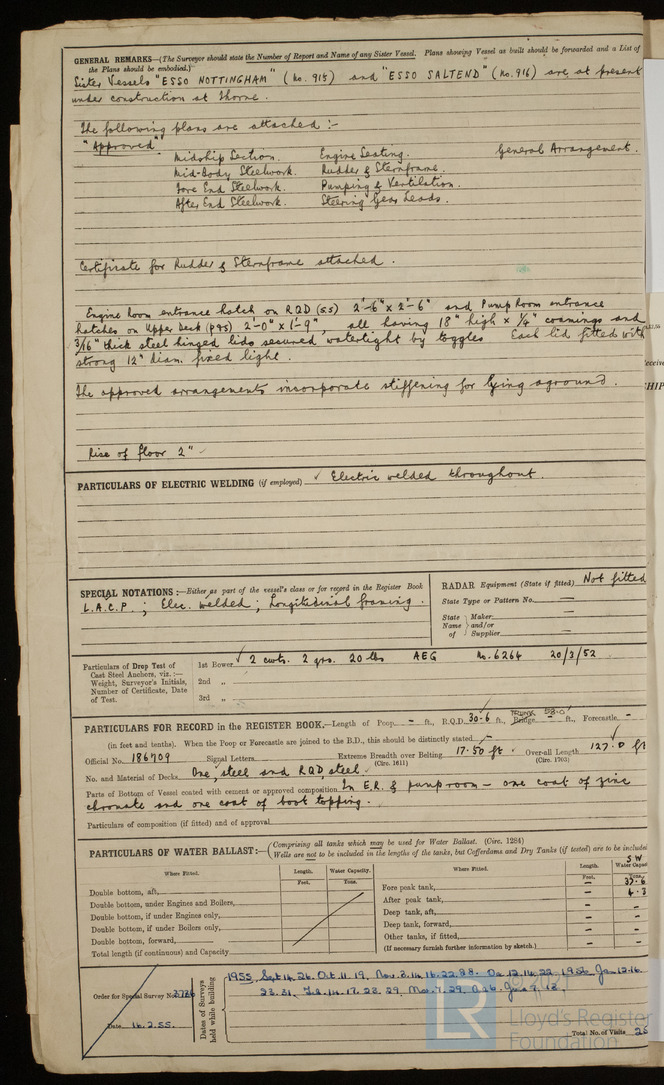 GENERAL REMARKS—(The Surveyor should state the Number of Report and Name of any Sister Vessel. Plans showing Vessel as built should be forwarded and a List of
the Plans should be embodied.)
Sister Vessels "ESSO NOTTINGHAM" (No. 915) and "ESSO SALTEND" (No. 916) are at present
under construction at Thorne.
The following plans are attached :-
"Approved"
Midship Section. Engine Seating. General Arrangement.
Mid-Body Steelwork. Rudder & Sternframe.
Fore End Steelwork. Pumping & Ventilation.
After End Steelwork. Steering Gear Leads.
Certificate for Rudder & Sternframe attached.
Engine Room entrance hatch on RQD (SS) 2'-6" x 2'-6" and Pump Room entrance
hatches on Upper Deck (P&S) 2'-0" x 1'-9", all having 18" high x 1/4" coamings and
3/16" thick steel hinged lids secured watertight by toggles Each lid fitted with
strong 12" diam. fixed light.
The approved arrangements incorporate stiffening for lying aground.
Rise of floor 2"
PARTICULARS OF ELECTRIC WELDING (if employed) Electric welded throughout.
SPECIAL NOTATIONS :—Either as part of the vessel's class or for record in the Register Book
L.A.C.P. ; Elec. welded ; Longitudinal framing.
RADAR Equipment (State if fitted) Not fitted
State Type or Pattern No. —
State Name of Maker and/or Supplier — —
Particulars of Drop Test of Cast Steel Anchors, viz. :— Weight, Surveyor's Initials, Number of Certificate, Date of Test.
1st Bower 2 cwts. 2 qrs. 20 lbs AEG No. 6264 20/3/52
2nd „
3rd „
PARTICULARS FOR RECORD in the REGISTER BOOK.—Length of Poop - ft., R.Q.D. 30.6 ft., Bridge - ft., Forecastle -
TRUNK
(in feet and tenths). When the Poop or Forecastle are joined to the B.D., this should be distinctly stated -
Official No. 186709 Signal Letters Extreme Breadth over Belting 17.50 ft. Over-all Length 127.0 ft
(Circ. 1611) (Circ. 1703)
No. and Material of Decks One, steel and RQD, steel
Parts of Bottom of Vessel coated with cement or approved composition In E.R. & pumproom - one coat of zinc
chromate and one coat of boot topping.
Particulars of composition (if fitted) and of approval
PARTICULARS OF WATER BALLAST:— (Comprising all tanks which may be used for Water Ballast. (Circ. 1284)
Wells are not to be included in the lengths of the tanks, but Cofferdams and Dry Tanks (if tested) are to be included
Where Fitted. Length. Water Capacity. Where Fitted. Length. SW Water Capacit
Feet. Tons. Feet. Tons.
Double bottom, aft, Fore peak tank, - 37.6
Double bottom, under Engines and Boilers, After peak tank, - 4.3
Double bottom, if under Engines only, Deep tank, aft, - -
Double bottom, if under Boilers only, Deep tank, forward, - -
Double bottom, forward, Other tanks, if fitted, - -
Total length (if continuous) and Capacity (If necessary furnish further information by sketch.)
Order for Special Survey No. 2726
Date 16.2.55.
Dates of Surveys held while building
1955 Sept 14. 26. Oct. 11. 19. Nov. 14. 16. 22. 28. 12. 14. 22. 1956 Jan 12. 16.
23. 31. Feb. 14. 17. 23. 29. Mar. 7. 29.
Total No. of Visits
LR
Lloyd's Register
Foundation